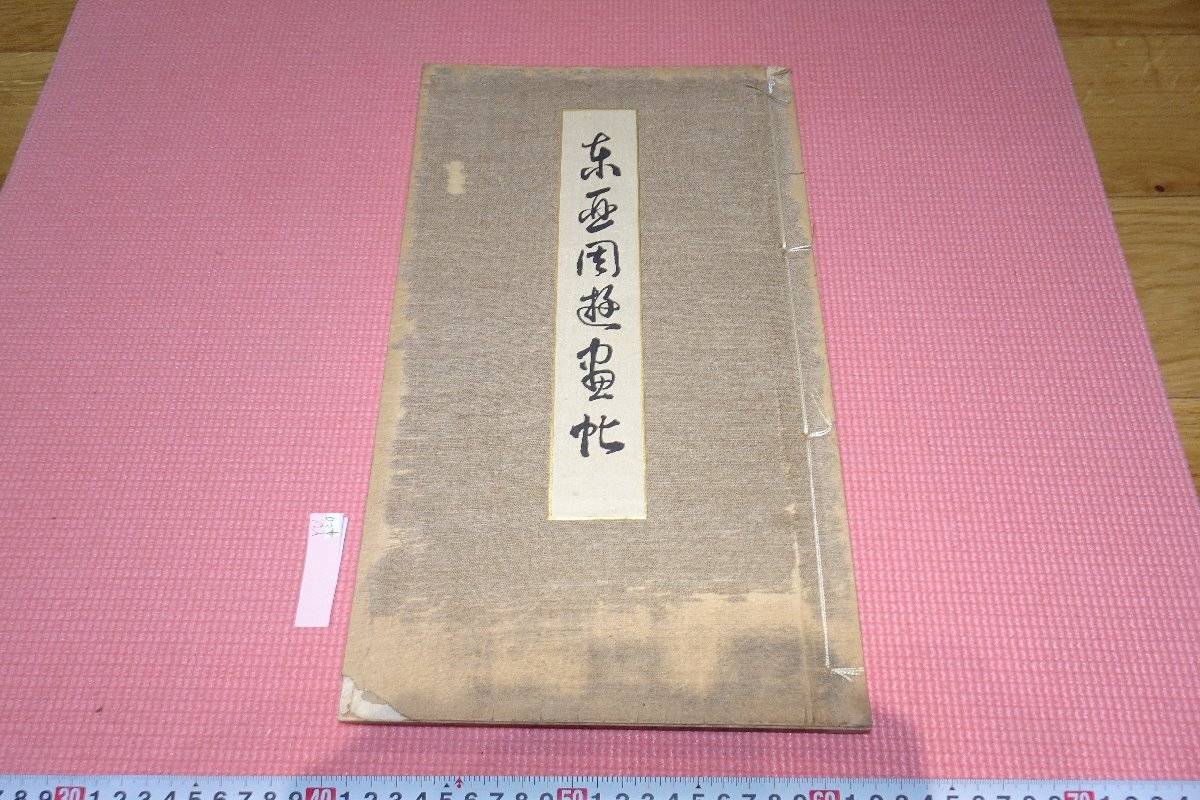 东亜周遊畫帖
8 9 30 1 2 3 4 5 6 7 8 9 40 1 2 3 4 5 6 7 8 9 50 1 2 3 4 5 6 7 8 9 60 1 2 3 4 5 6 7 8 9 70 1 2 3 4